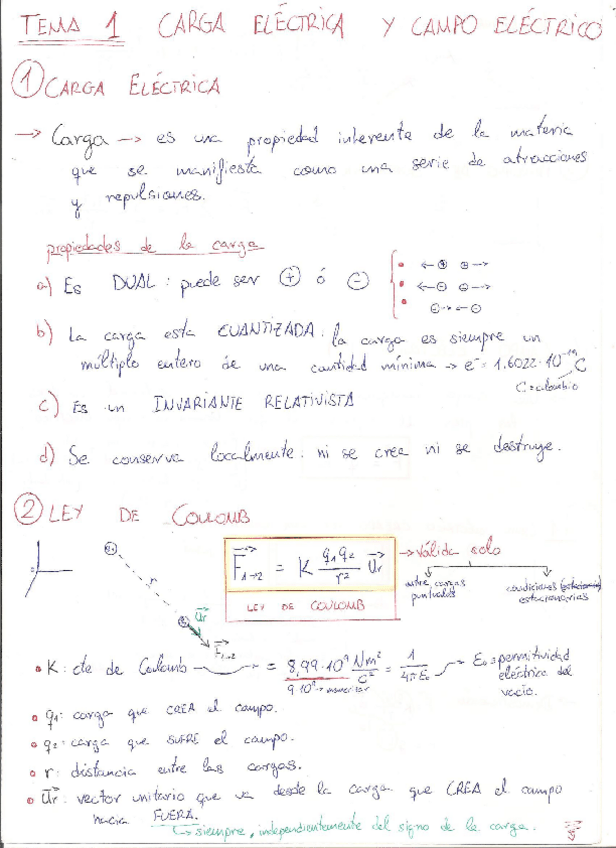 TEMA 1 CARGA ELÉCTRICA Y CAMPO ELÉCTRICO
① CARGA ELÉCTRICA
→ Carga → es una propiedad inherente de la materia
que se manifiesta como una serie de atracciones
y repulsiones.
propiedades de la carga
a) Es DUAL: puede ser ⊕ ó ⊖
← ⊕ ⊕ →
← ⊖ ⊖ →
⊕ → ← ⊖
b) La carga esta CUANTIZADA: la carga es siempre un
múltiplo entero de una cantidad mínima → e⁻ = 1,6022·10⁻¹⁹ C
C = culombio
c) Es un INVARIANTE RELATIVISTA
d) Se conserva localmente: ni se crea ni se destruye.
② LEY DE COULOMB
F₁→₂ = K q₁q₂/r² Ur
→ válida solo
entre cargas puntuales
condiciones estacionarias
LEY DE COULOMB
r
Ur
F₁→₂
• K: cte de Coulomb = 8,99·10⁹ Nm²/C² = 1/4πε₀ → ε₀ = permitividad
eléctrica del
vacío.
9·10⁹ →
• q₁: carga que CREA el campo.
• q₂: carga que SUFRE el campo.
• r: distancia entre las cargas.
• Ur: vector unitario que va desde la carga que CREA el campo
hacia FUERA.
↳ siempre, independientemente del signo de la carga.